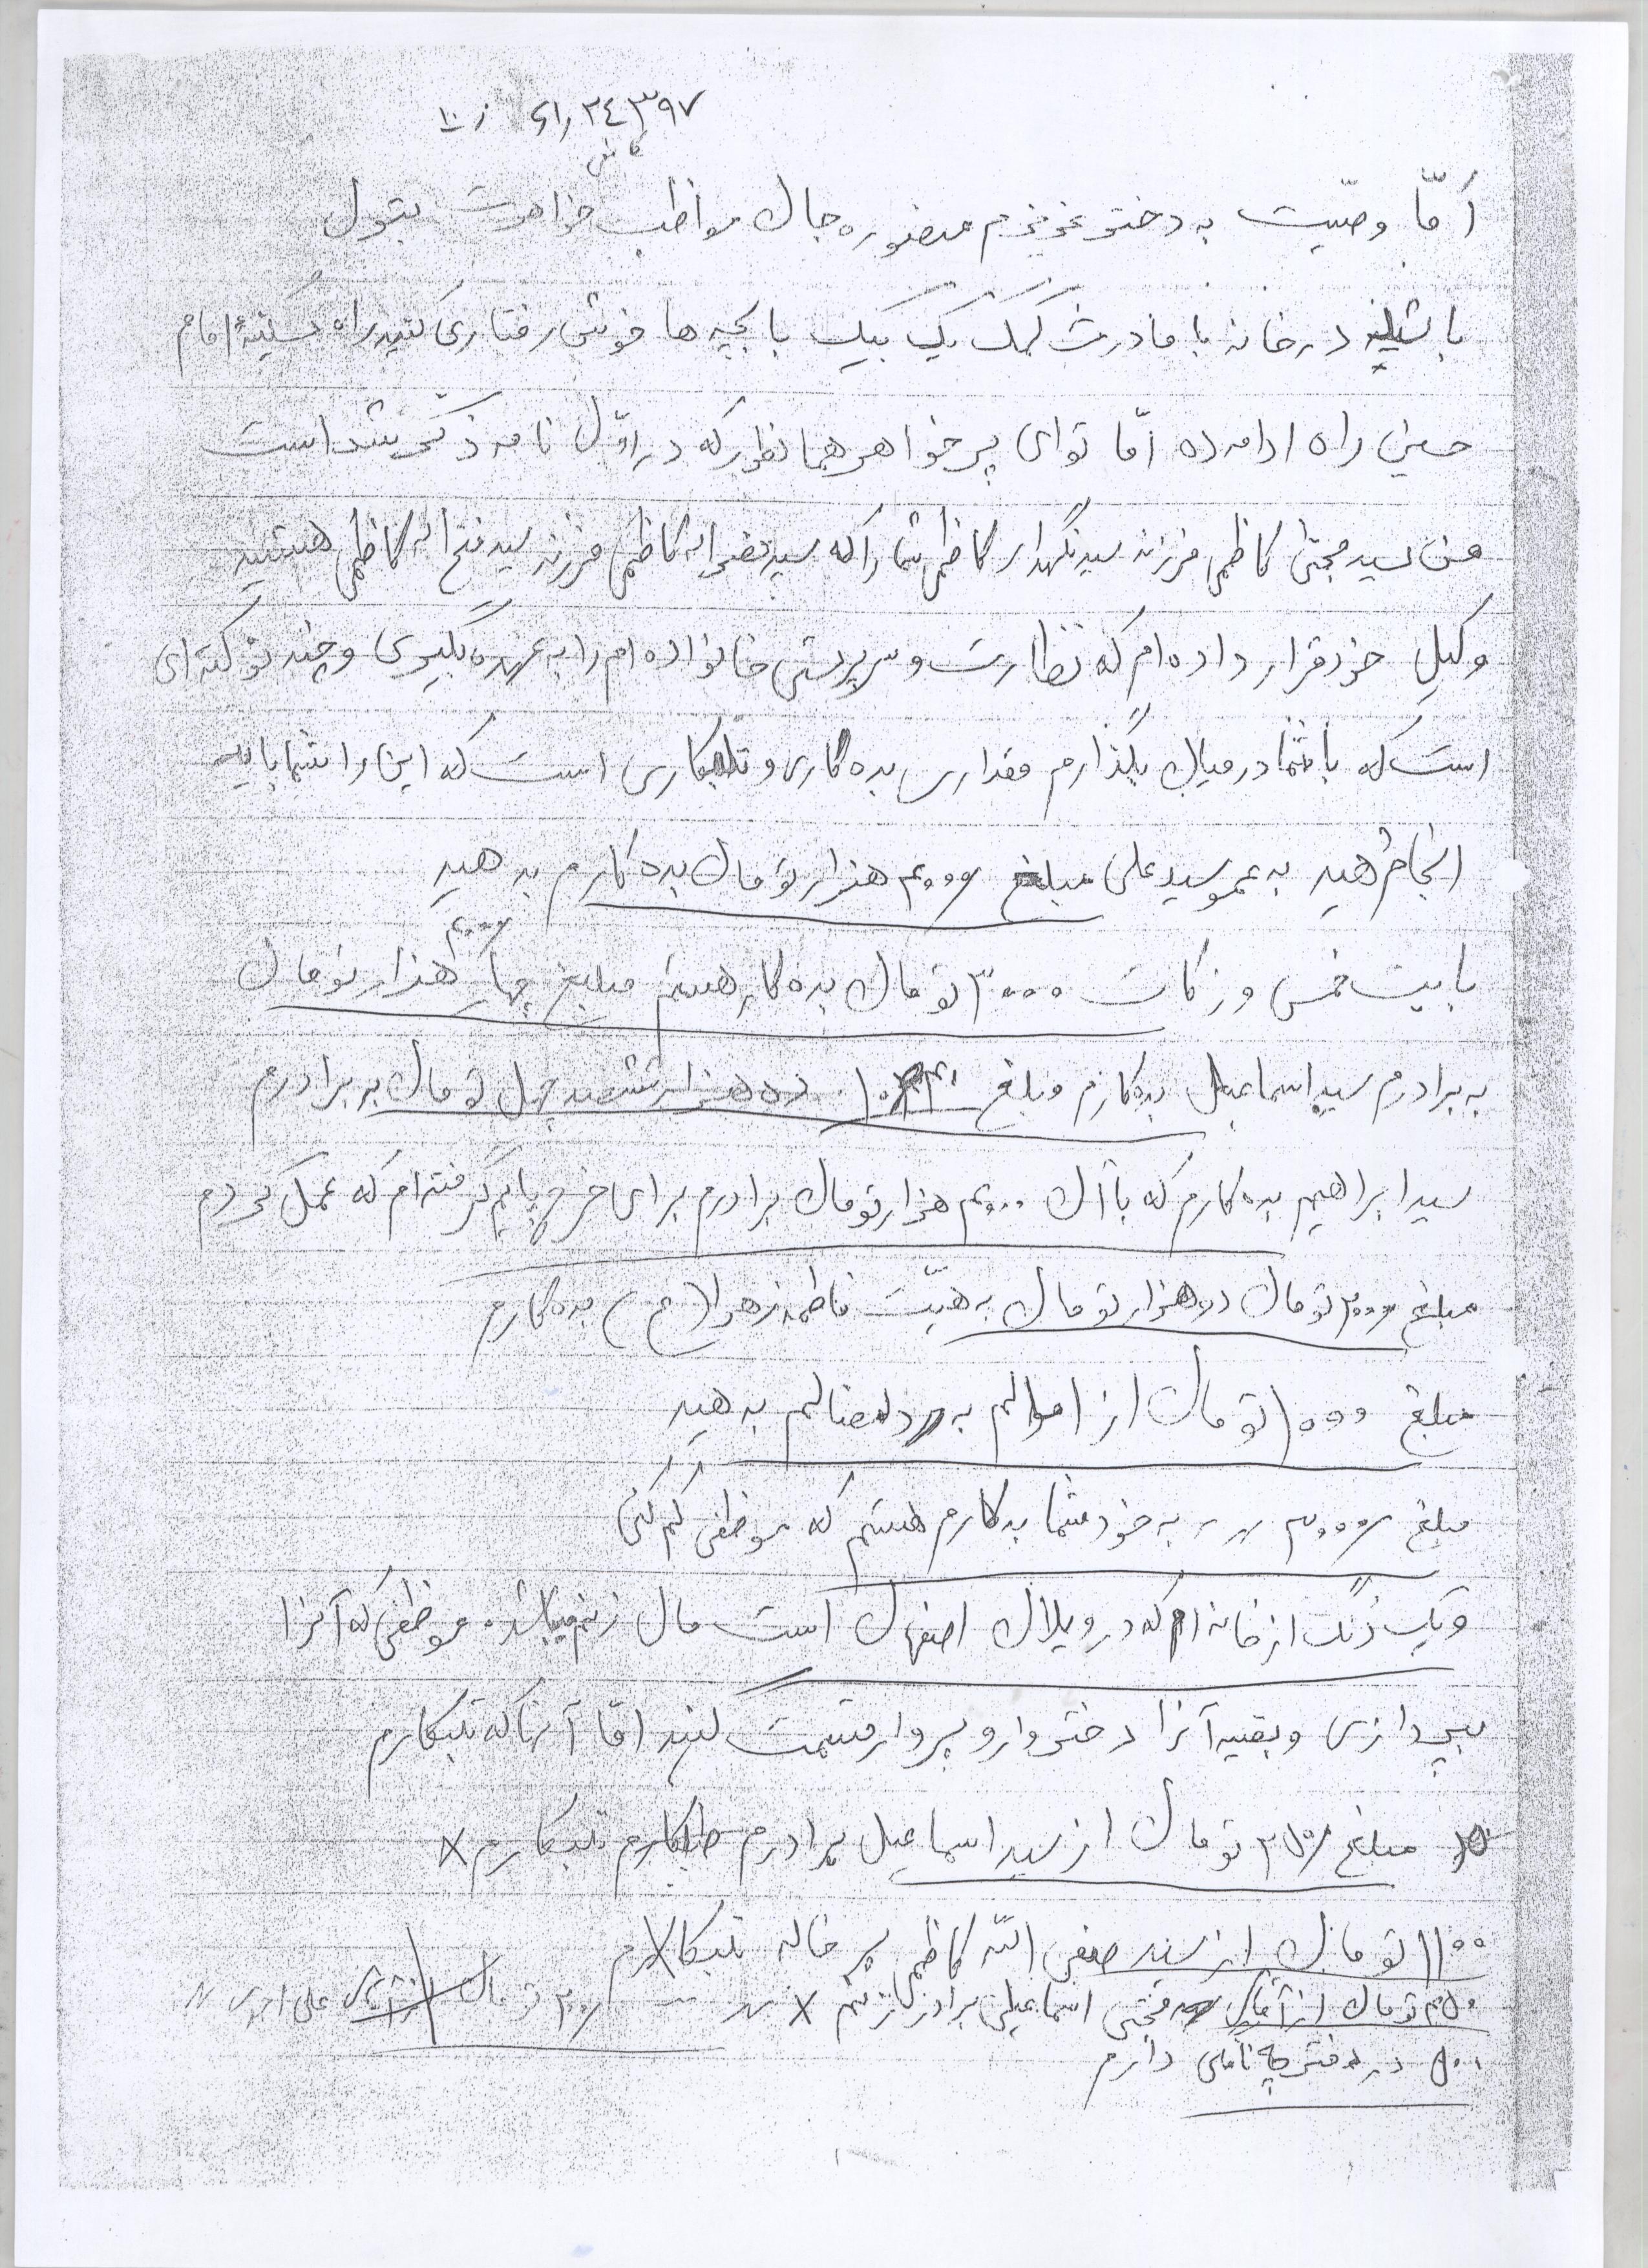 اَمّا وصیّت به دختر عزیزم منصوره جان مواظب خواهرت بتول
باشید در خانه با مادرت کمک بکنید با بچه ها خوش رفتاری کنید راه سکینهٔ امام
حسین راه ادامه ده امّا تو ای پسر خواهر همانطور که در اوّل نامه ذکر شد است
من سید مجتبی کاظمی فرزند سید نگهدار کاظمی شما را که سید نصراله کاظمی فرزند سید فتح اله کاظمی هستید
وکیل خود قرار داده ام که نظارت و سرپرستی خانواده ام را به عهده بگیری و چند نکته ای
است که با شما در میان بگذارم مقداری بده کاری و تلبکاری است که این را شما باید
انجام دهید به عمو سید علی مبلغ هزار تومان بده کارم بدهید
بابیت خمس و زکات ۳۰۰۰ تومان بده کار هستم مبلغ چهار هزار تومان
به برادرم سید اسماعیل بده کارم مبلغ ده هزار ششصد چهل تومان به برادرم
سید ابراهیم بده کارم که با آن هزار تومان برادرم برای خرج پایم گرفته ام که عمل کردم
مبلغ ۲۰۰۰ تومان دو هزار تومان به هیئت فاطمه زهرا (ع) بده کارم
مبلغ ۱۰۰۰ تومان از اموالم به بدهید
مبلغ به خود شما بدکارم هستم که موظفی کم کنی
و یک دنگ از خانه ام که در ویلان اصفهان است مال زنم میباشد موظفی که آنرا
بپردازی و بقیه آنرا دختر وار و پسر وار قسمت کنید اما آنها که تلبکارم
مبلغ تومان از سید اسماعیل برادرم تلبکارم
۱۱۰۰ تومان از سید صفی الله کاظمی پسر خاله تلبکارم
تومان از آقای مجتبی اسماعیلی برادر زنم تومان از آقای علی
۵۰۰ در دفترچه دارم